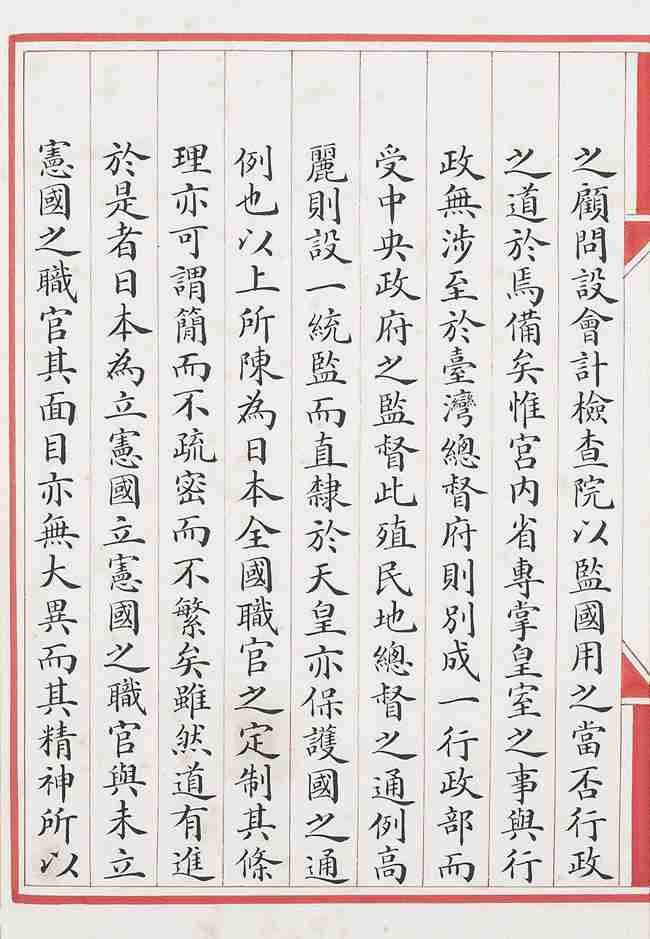 之顧問設會計檢查院以監國用之當否行政
之道於焉備矣惟宮內省專掌皇室之事與行
政無涉至於臺灣總督府則別成一行政部而
受中央政府之監督此殖民地總督之通例高
麗則設一統監而直隸於天皇亦保護國之通
例也以上所陳為日本全國職官之定制其條
理亦可謂簡而不疏密而不繁矣雖然道有進
於是者日本為立憲國立憲國之職官與未立
憲國之職官其面目亦無大異而其精神所以